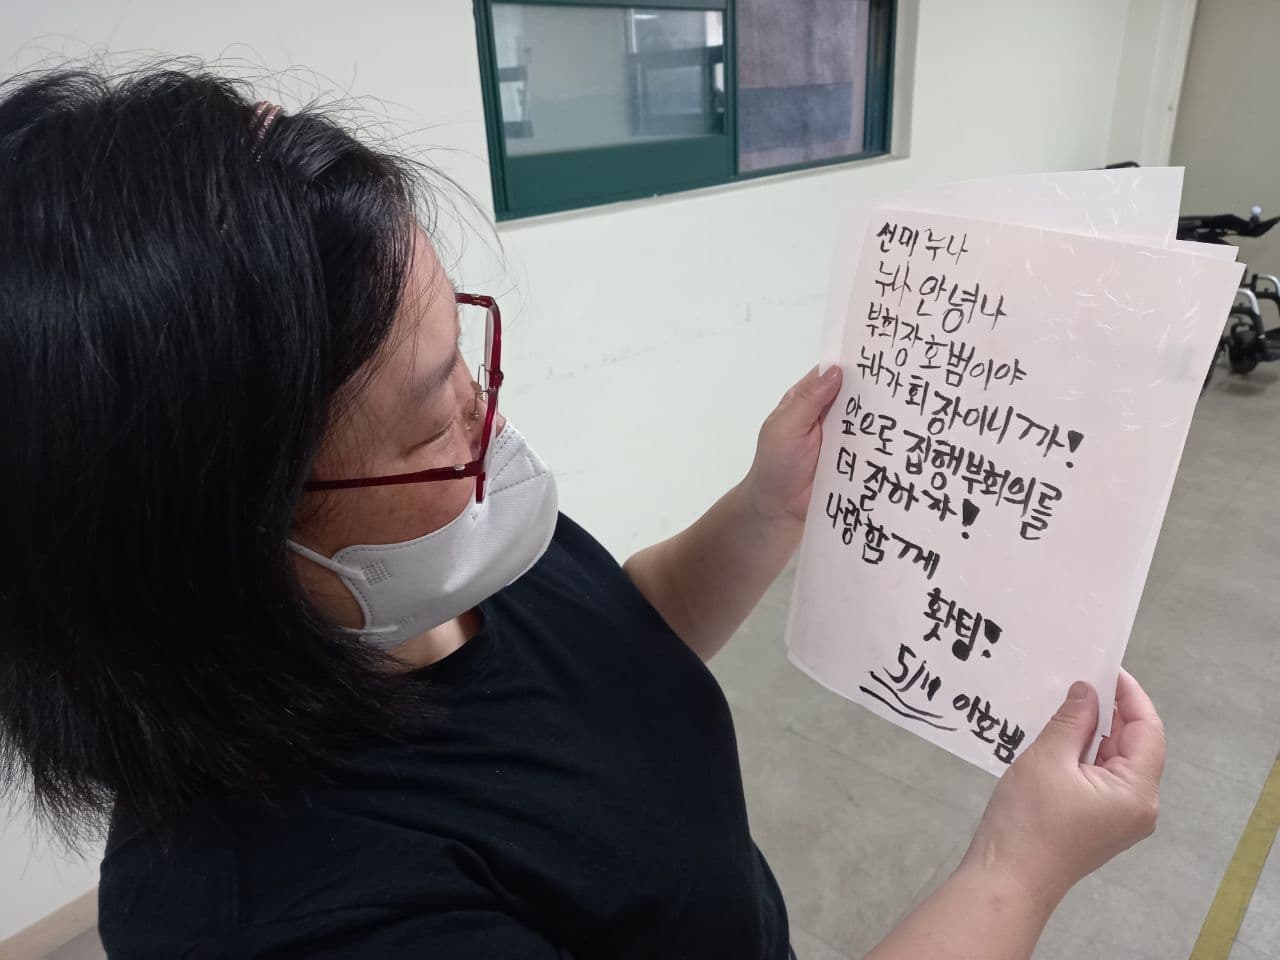 선미 누나
누나 안녕 나
부회장 호범이야
누나가 회장이니까!
앞으로 집행부회의를
더 잘하자!
나랑 함께
홧팅!
5/11 이호범